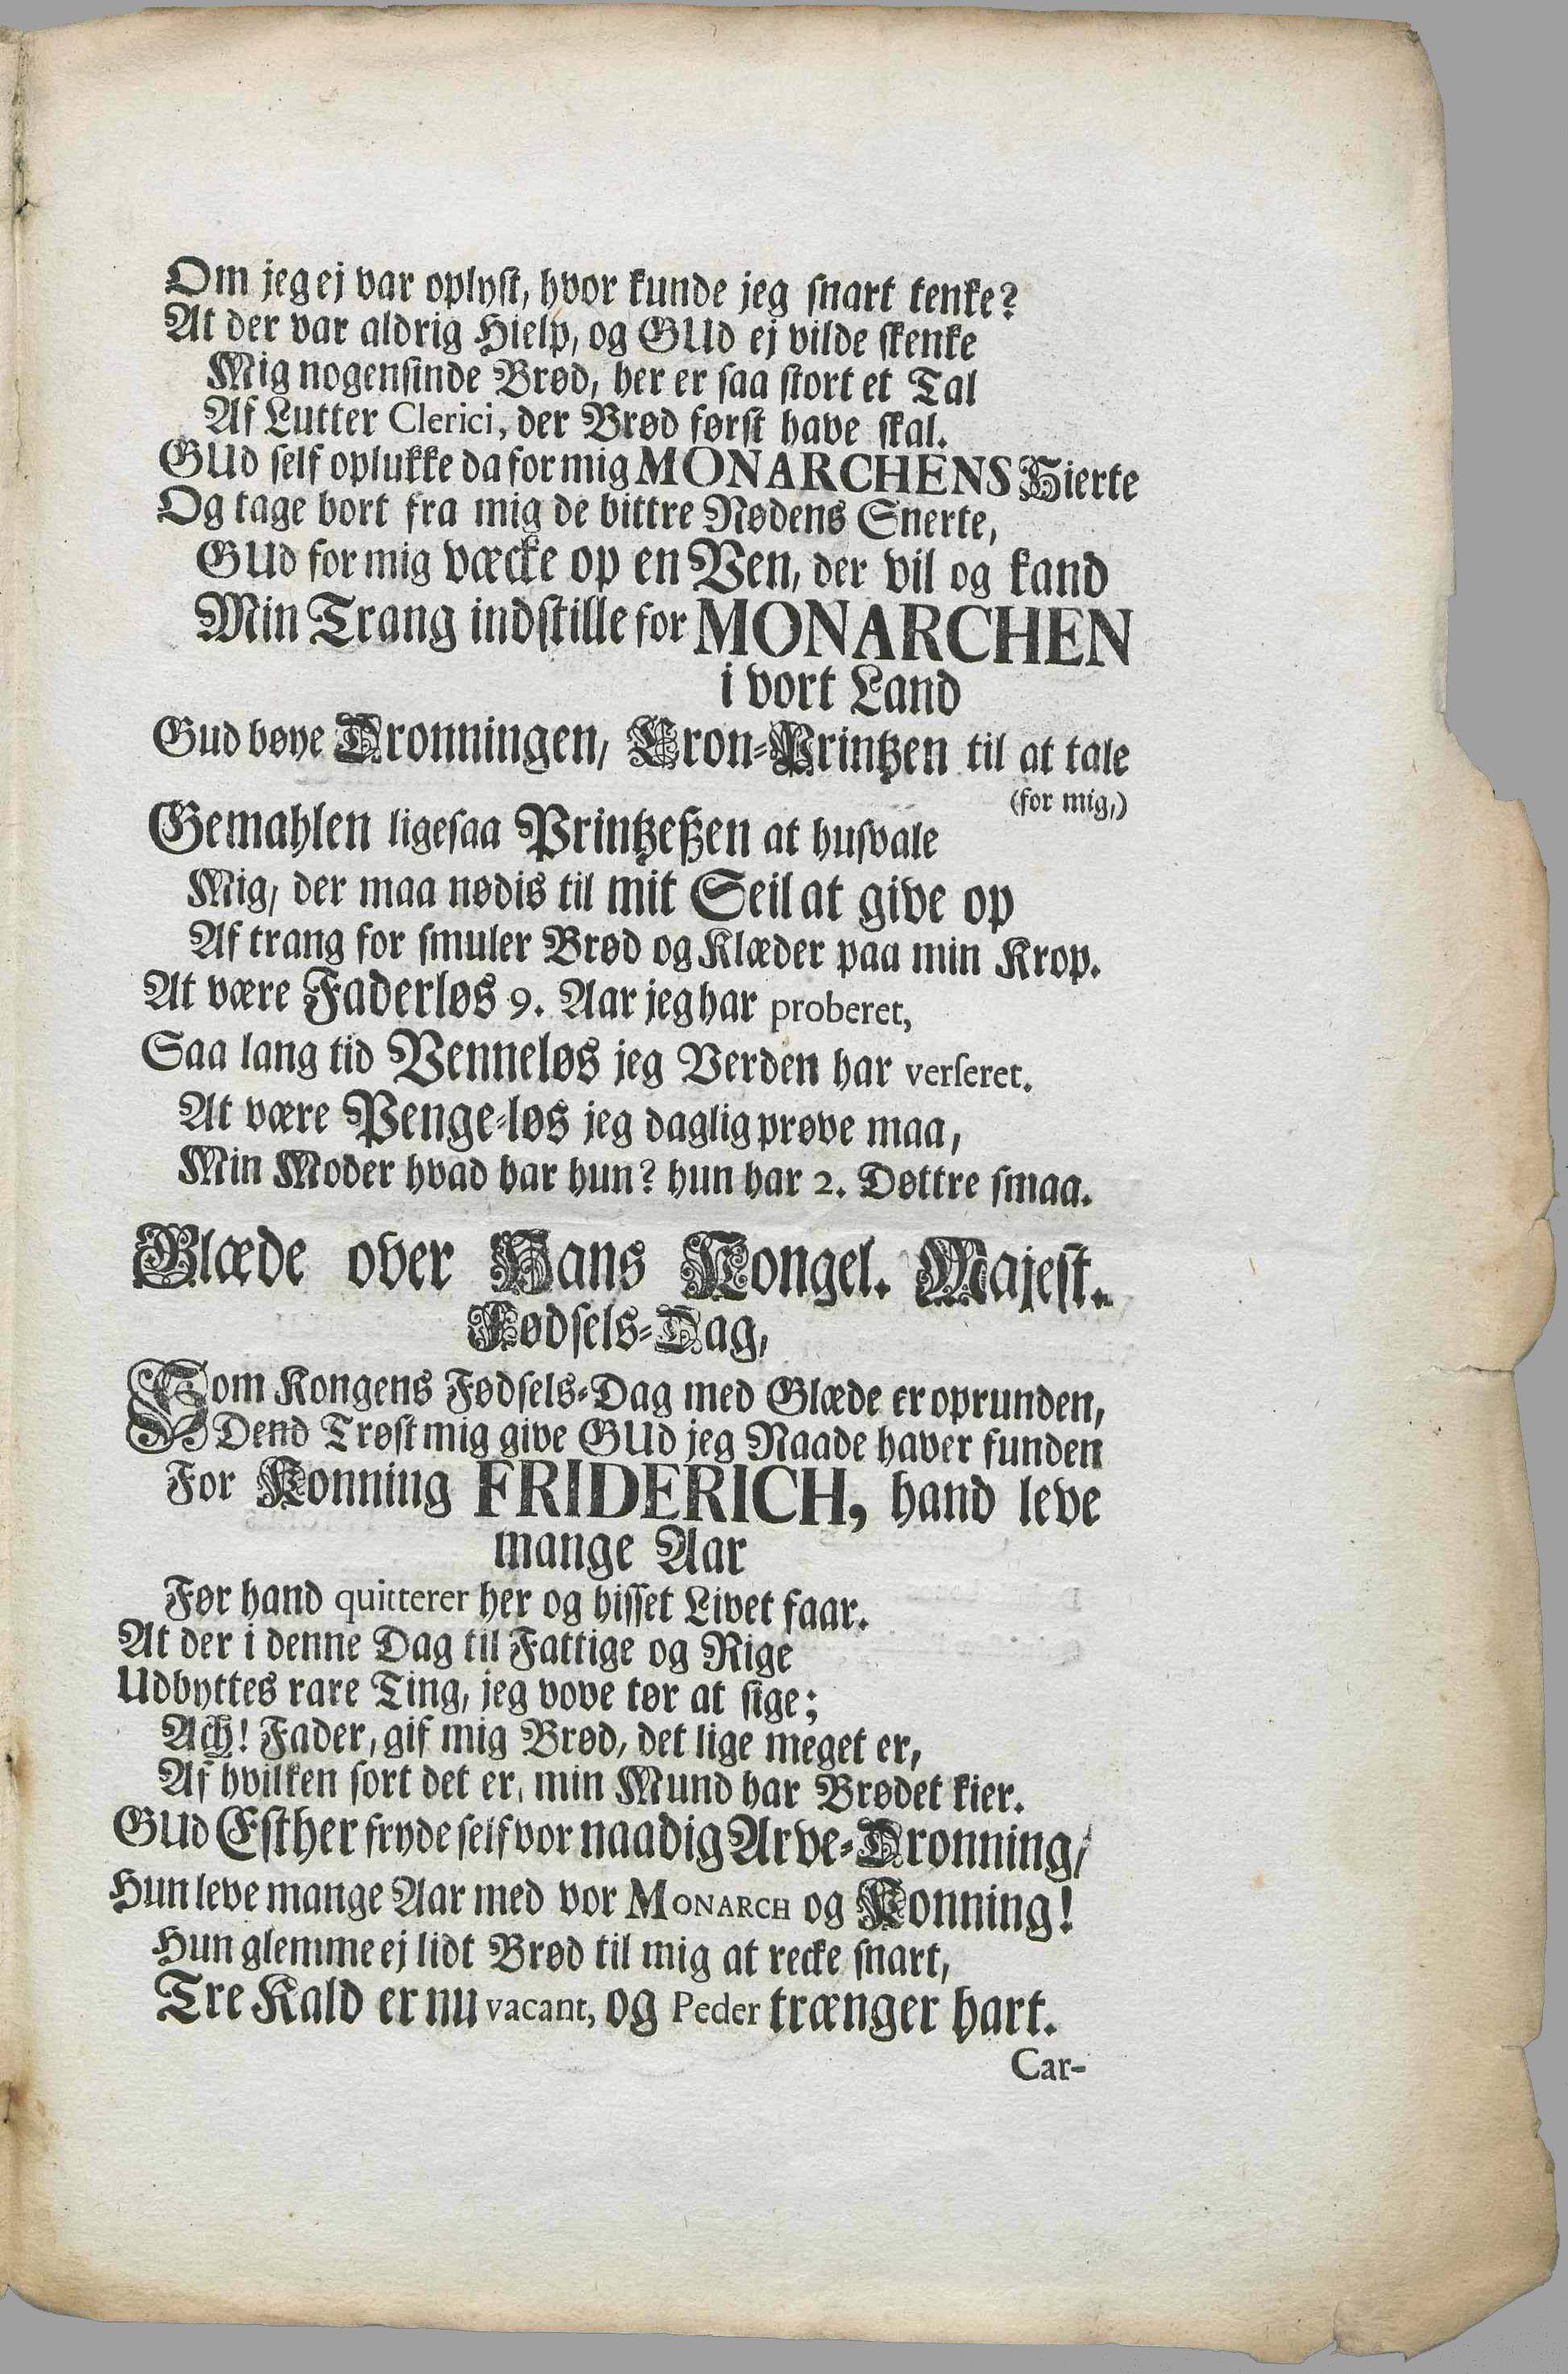 Om jeg ej var oplyst, hvor kunde jeg snart tenke?
At der var aldrig Hielp, og GUd ej vilde skenke
Mig nogensinde Brød, her er saa stort et Tal
Af Lutter Clerici, der Brød først have skal.
GUd self oplukke da for mig MONARCHENS Hierte
Og tage bort fra mig de bittre Nødens Snerte,
GUd for mig væcke op en Ven, der vil og kand
Min Trang indstille for MONARCHEN
i vort Land
Gud bøye Dronningen, Cron-Printzen til at tale
(for mig,)
Gemahlen ligesaa Printzeßen at husvale
Mig, der maa nødis til mit Seil at give op
Af trang for smuler Brød og Klæder paa min Krop.
At være Faderløs 9. Aar jeg har proberet,
Saa lang tid Venneløs jeg Verden har verseret.
At være Penge-løs jeg daglig prøve maa,
Min Moder hvad har hun? hun har 2. Døttre smaa.
Glæde over Hans Kongel. Majest.
Fødsels-Dag,
Som Kongens Fødsels-Dag med Glæde er oprunden,
Dend Trøst mig give GUd jeg Naade haver funden
For Konning FRIDERICH, hand leve
mange Aar
Før hand quitterer her og hisset Livet faar.
At der i denne Dag til Fattige og Rige
Udbyttes rare Ting, jeg vove tør at sige;
Ach! Fader, gif mig Brød, det lige meget er,
Af hvilken sort det er, min Mund har Brødet kier.
GUd Esther fryde self vor naadig Arve-Dronning,
Hun leve mange Aar med vor MONARCH og Konning!
Hun glemme ej lidt Brød til mig at recke snart,
Tre Kald er nu vacant, og Peder trænger hart.
Car-